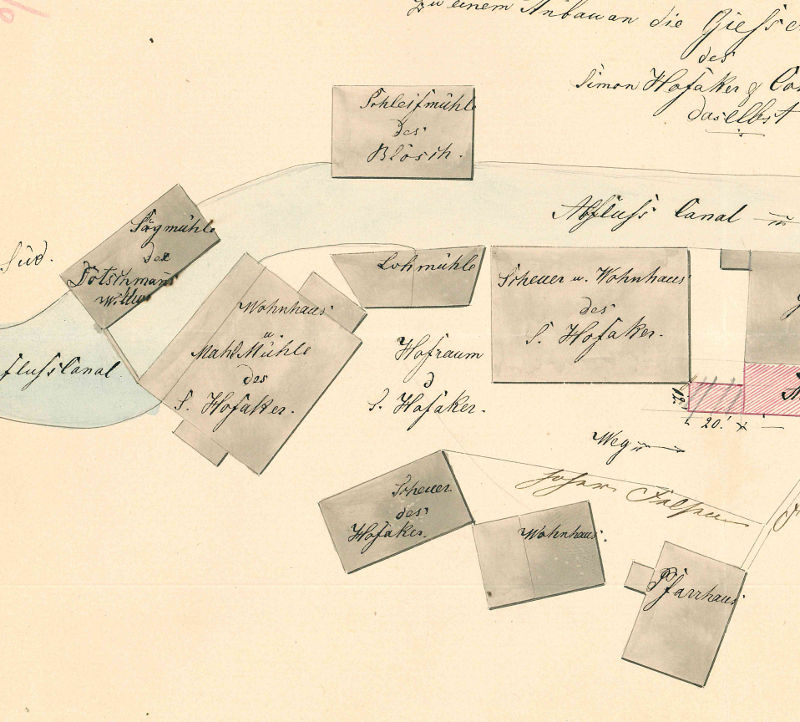 Zu einem Anbau an die Giesse
des
Simon Hofaker & Co
daselbst
Schleifmühle
des
Blösch.
Sägmühle
der
Süd.
Abfluss Canal
Lohmühle
Scheuer u. Wohnhaus
des
S. Hofaker.
Wohnhaus
u.
Mahl Mühle
des
S. Hofaker.
flusscanal
Hofraum
d
S. Hofaker.
12.'
20.'
Weg
hoher Felsen
Scheuer
des
Hofaker.
Wohnhaus
Pfarrhaus